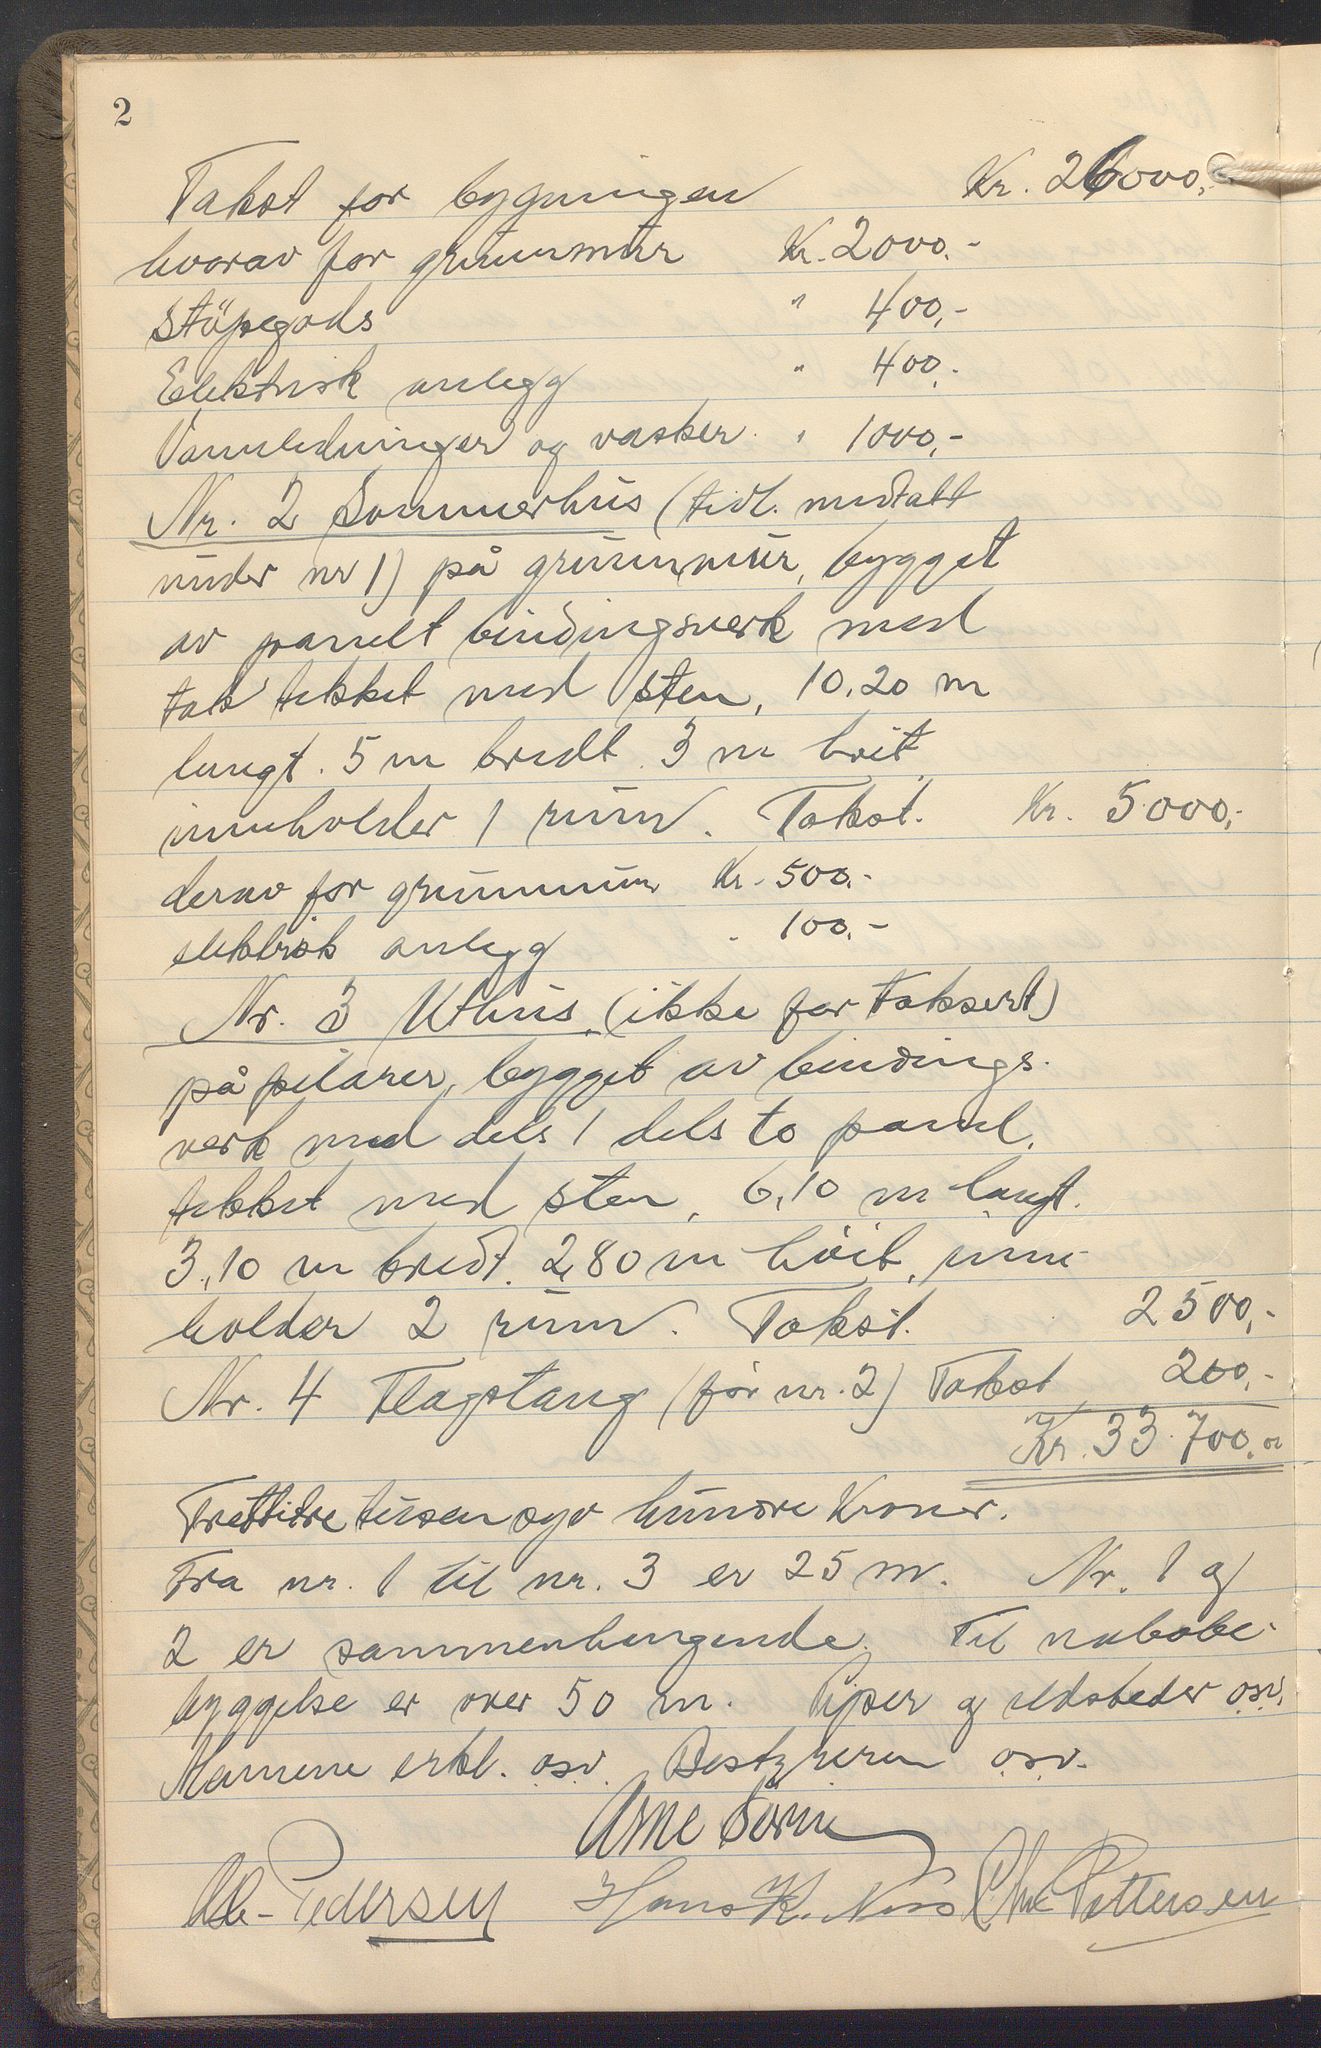 2
Takst for bygningen Kr. 26000,-
hvorav for grunnmur Kr. 2000.-
Støpegods " 400,-
Elektrisk anlegg " 400,-
Vannledninger og vasker " 1000,-
Nr. 2 Sommerhus (tidl. medtatt
under nr 1) på grunnmur, bygget
av panelt bindingsverk med
tak tekket med sten, 10,20 m
langt. 5 m bredt. 3 m høit
inneholder 1 rum. Takst. Kr. 5000,-
derav for grunnmur Kr. 500.-
elektrisk anlegg " 100.-
Nr. 3 Uthus (ikke før taksert)
på pilarer, bygget av bindings-
verk med dels 1 dels to panel,
tekket med sten, 6,10 m langt.
3,10 m bredt. 2,80 m høit, inne-
holder 2 rum. Takst. 2500,-
Nr. 4 Flagstang (før nr. 2) Takst 200,-
Kr. 33.700.00
Trettitre tusen syv hundre Kroner.
Fra nr. 1 til nr. 3 er 25 m. Nr. 1 og
2 er sammenhengende. Til nabobe-
byggelse er over 50 m. Piper og ildsteder osv.
Mennene erkl. osv. Bestyreren osv.
Arne
Pedersen Hans K. Chr Pettersen